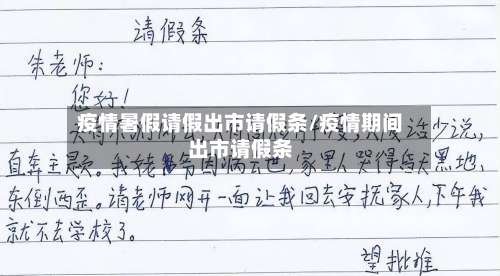 请假条
朱老师:
您好!
疫情暑假请假出市请假条/疫情期间
出市请假条
废话少说,
直奔主题。我姥爷因病去世,家里人哭得昏天黑地、
东倒西歪。请老师网开一面让我回去安抚家人,下午我
就不去学校了。
望批准